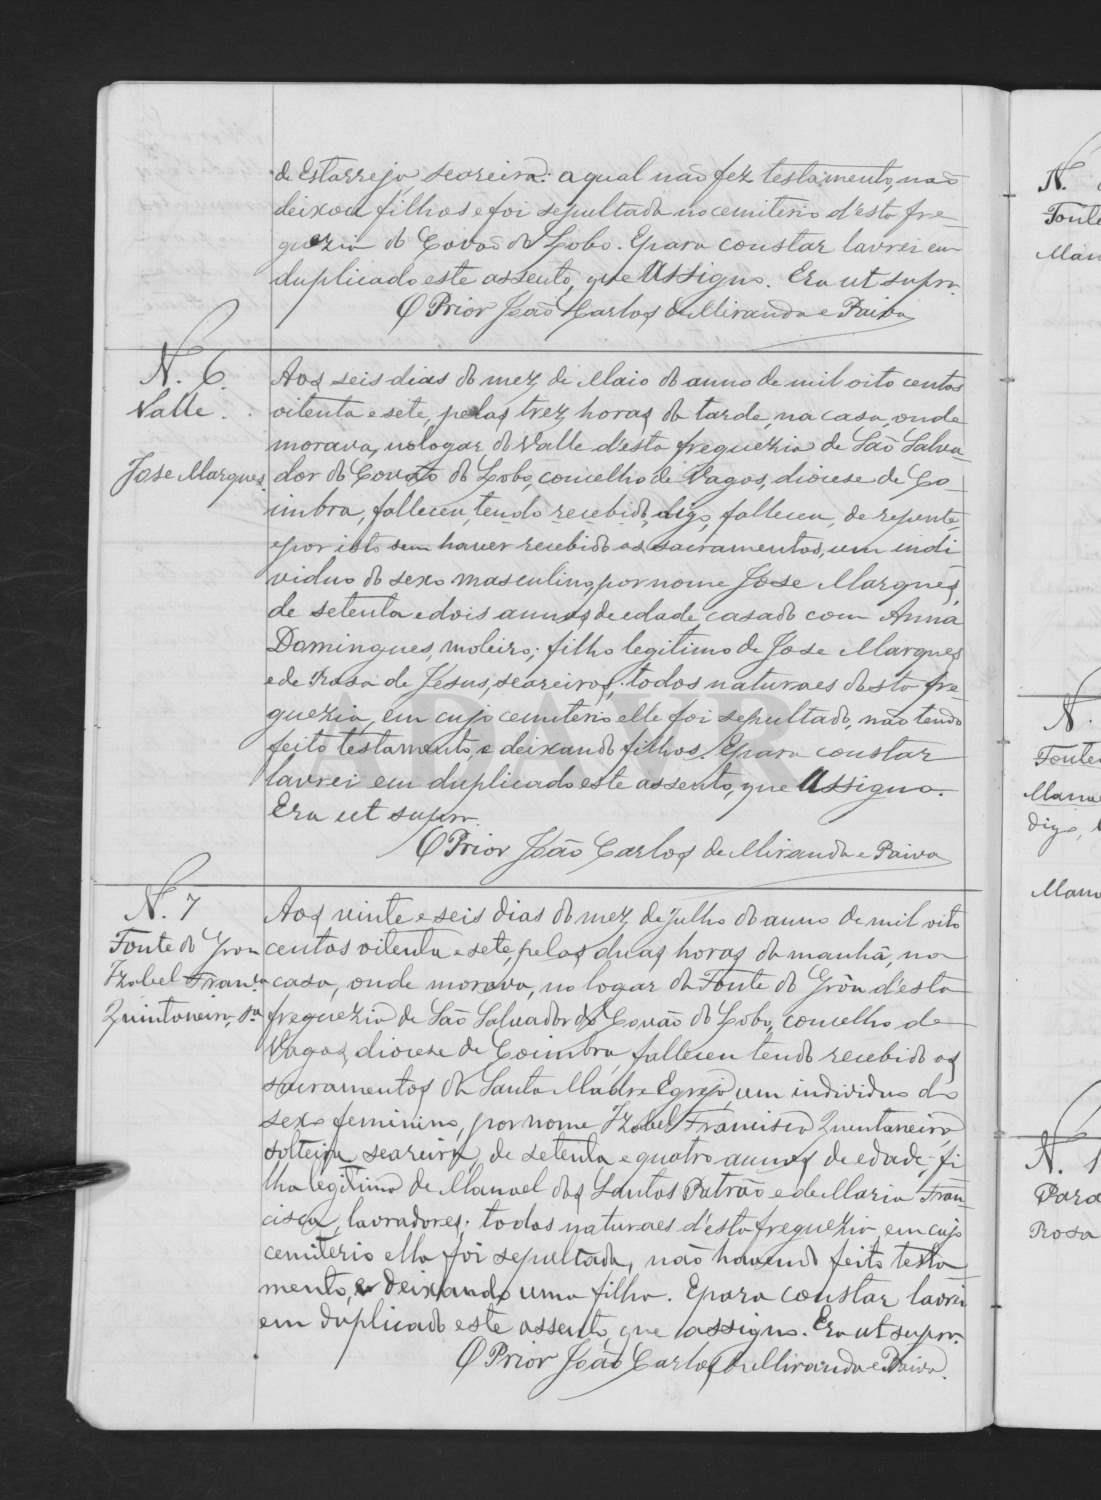 de Estarreja, seareira: a qual não fez testamento, não
deixou filhos e foi sepultada no cemiterio d'esta fre-
guezia do Covão do Lobo. E para constar lavrei em
duplicado este assento, que assigno. Era ut supra.
O Prior João Carlos de Miranda e Paiva
N. 6.
Valle.
Jose Marques.
Aos seis dias do mez de Maio do anno de mil oito centos
oitenta e sete, pelas trez horas da tarde, na casa, onde
morava, no logar do Valle d'esta freguezia de São Salva-
dor do Covão do Lobo, concelho de Vagos, diocese de Co-
imbra, falleceu, tendo recebido, digo, falleceu, de repente,
e por isto sem haver recebido os sacramentos, um indi
viduo do sexo masculino, por nome Jose Marques,
de setenta e dois annos de edade, casado com Anna
Domingues, moleiro; filho legitimo de Jose Marques
e de Rosa de Jesus, seareiros, todos naturaes desta fre
guezia, em cujo cemiterio elle foi sepultado, não tendo
feito testamento, e deixando filhos. E para constar
lavrei em duplicado este assento, que assigno.
Era ut supra.
O Prior João Carlos de Miranda e Paiva
N. 7
Fonte do Gron
Izabel Fran.ca
Quintaneira, s.a
Aos vinte e seis dias do mez de Julho do anno de mil oito
centos oitenta e sete, pelas duas horas da manhã, na
casa, onde morava, no logar da Fonte do Grôn d'esta
freguezia de São Salvador do Covão do Lobo, concelho de
Vagos, diocese de Coimbra, falleceu tendo recebido os
sacramentos da Santa Madre Egreja, um individuo do
sexo feminino, por nome Izabel Francisca Quentaneira,
solteira, seareira, de setenta e quatro annos de edade, fi
lha legitima de Manoel dos Santos Patrão e de Maria Fran-
cisca, lavradores; todos naturaes d'esta freguezia, em cujo
cemiterio ella foi sepultada, não havendo feito testa
mento, e deixando uma filha. E para constar lavrei
em duplicado este assento, que assigno. Era ut supra.
O Prior João Carlos de Miranda e Paiva.
ADAVR
N.
Fonte
N.
Fonte
digo,
N.
Rosa